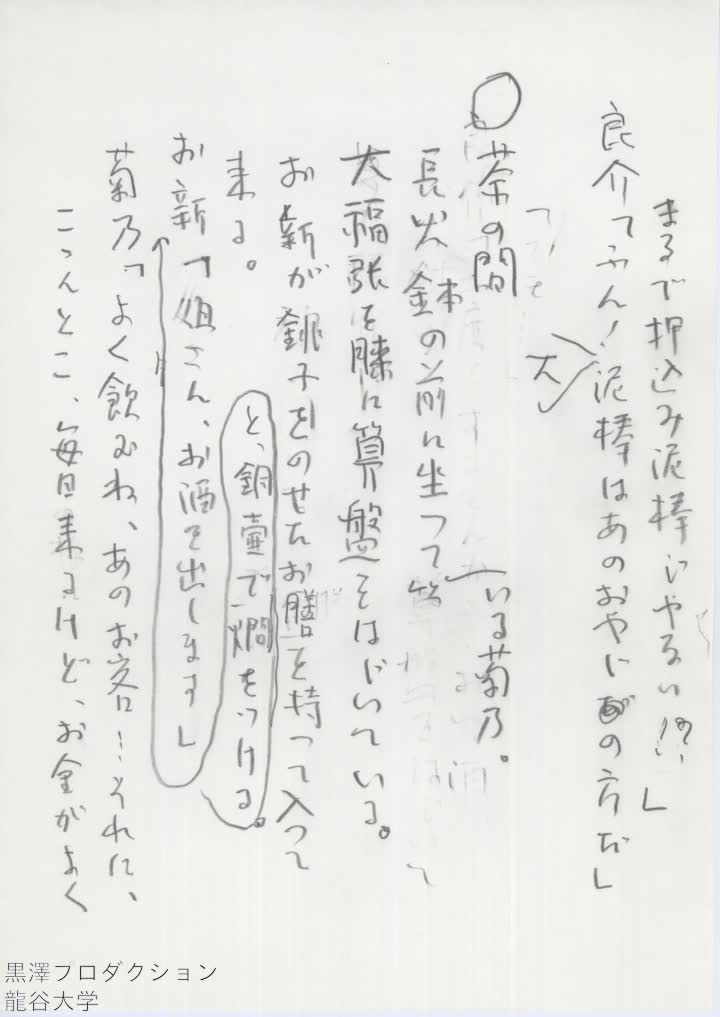 まるで押込み泥棒じやない!?」
良介「ふん!泥棒はあのおやじの方だ」
大
○茶の間
長火鉢の前に坐つている菊乃。
大福張を膝に算盤をはじいている。
お新が銚子をのせたお膳を持って入って
来る。
と、銅壷で燗をつける。
お新「姐さん、お酒を出します」
菊乃「よく飲むね、あのお客…それに、
こゝんとこ、毎日来るけど、お金がよく
黒澤プロダクション
龍谷大学